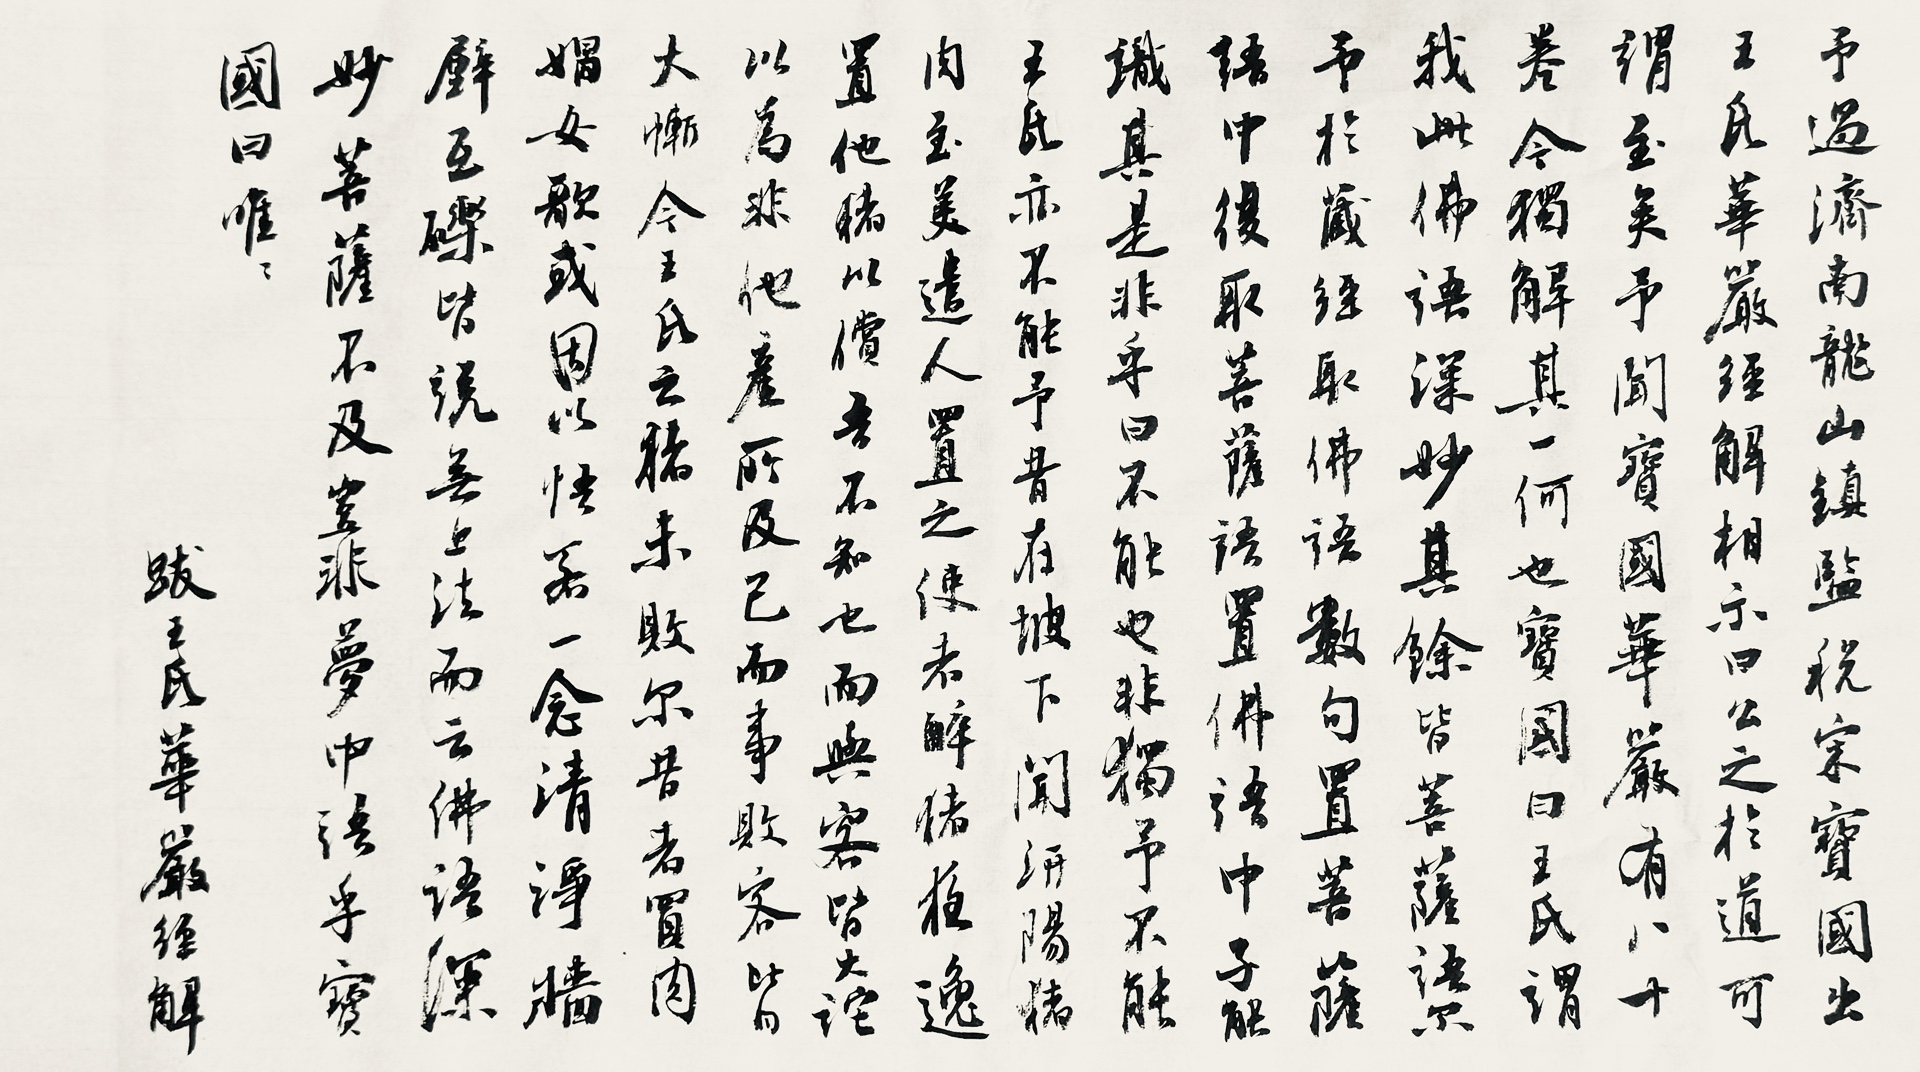 予過濟南龍山鎮監稅宋寶國出
王氏華嚴經解相示曰公之於道可
謂至矣予聞寶國華嚴有八十
卷今獨解其一何也寶國曰王氏謂
我此佛語深妙其餘皆菩薩語尔
予於藏經取佛語數句置菩薩
語中復取菩薩語置佛語中子能
識其是非乎曰不能也非獨予不能
王氏亦不能予昔在坡下聞汧陽猪
肉至美遣人置之使者醉猪夜逸
置他猪以償吾不知也而與客皆大詫
以為非他產所及已而事敗客皆
大慚今王氏之猪未敗尔昔者買肉
娼女歌或因以悟若一念清淨牆
壁瓦礫皆說無上法而云佛語深
妙菩薩不及豈非夢中語乎寶
國曰唯〻
跋王氏華嚴經解